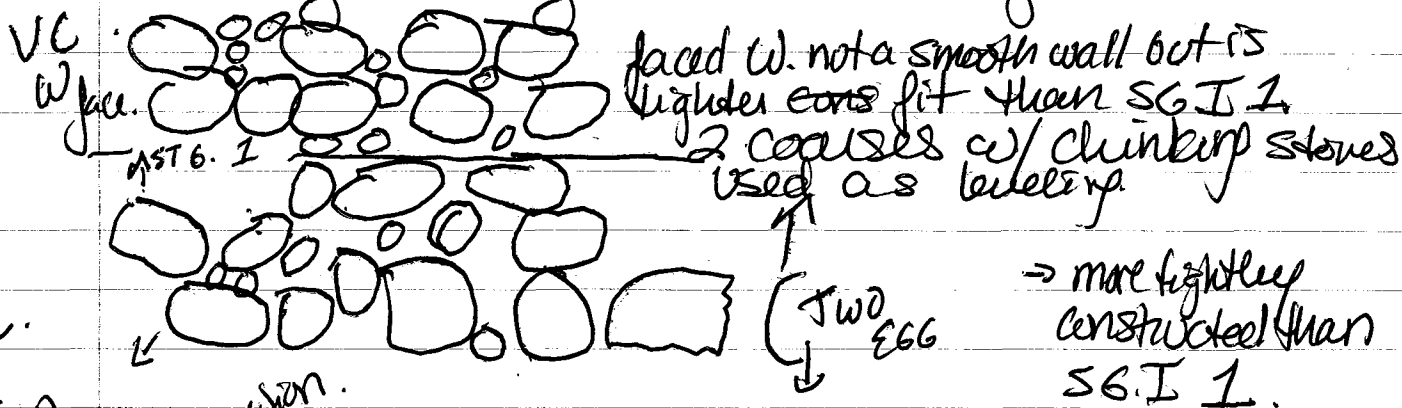 VC
W face.
faced W. not a smooth wall but is
tighter cons fit than SG I 1
2 courses w/ chinking stones
used as leveling
ST G. 1
TWO
EGG
→ more tightly
constructed than
SG.I 1.